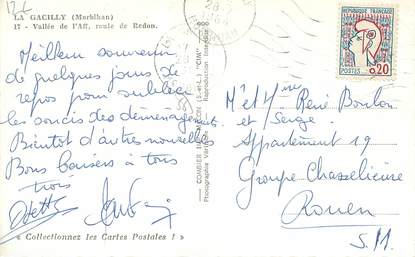 12 €
LA GACILLY (Morbihan)
17 - Vallée de l'Aff, route de Redon.
Meilleur souvenir
de quelques jours de
repos pour oublier
les soucis des déménagements.
Bientôt d'autres nouvelles
Bons baisers à tous
trois
Odette
« Collectionnez les Cartes Postales ! »
COMBIER IMP. MACON (S.-et-L.) "CIM"
Reproduction Interdite
REPUBLIQUE FRANÇAISE
POSTES 0,20
Mr et Mme René Boulon
et Serge
Appartement 19
Groupe Chasselièvre
Rouen
S.M.